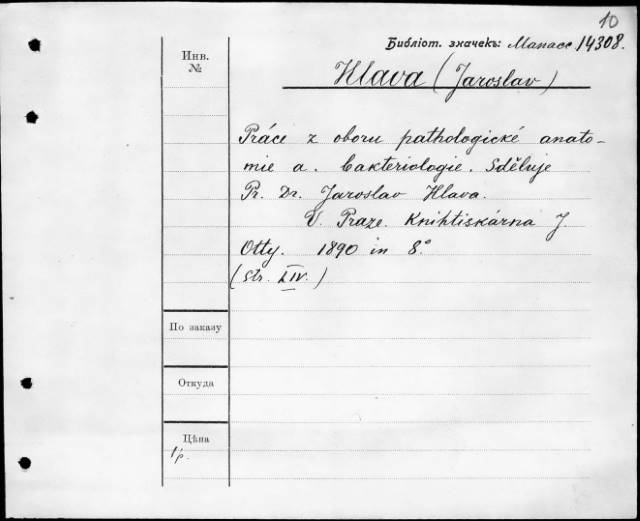 10
Библіот. значекъ: Манасс. 14308.
Инв.
№
Hlava (Jaroslav)
Práce z oboru pathologické anato-
mie a. bakteriologie. Sděluje
Pr. Dr. Jaroslav Hlava.
V. Praze. Knihtiskárna J.
Otty. 1890 in 8.°
(Str. LIV.)
По заказу
Откуда
Цѣна
1/р.